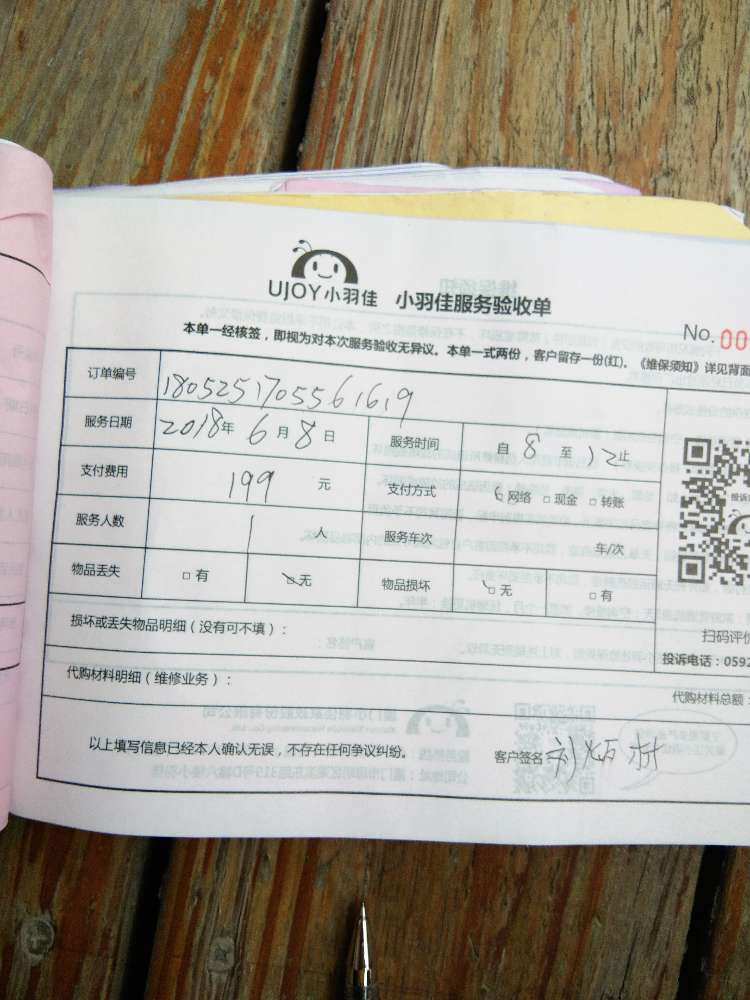 UJOY小羽佳 小羽佳服务验收单
No. 00
本单一经核签，即视为对本次服务验收无异议。本单一式两份，客户留存一份(红)。《维保须知》详见背面
订单编号 1805251705561619
服务日期 2018年 6月 8日 服务时间 自 8 至 12止
支付费用 199 元 支付方式 网络 □现金 □转账
服务人数 1 人 服务车次 车/次
物品丢失 □有 □无 物品损坏 □无 □有
扫码评价
损坏或丢失物品明细（没有可不填）：
投诉电话：0592
代购材料明细（维修业务）：
代购材料总额：
以上填写信息已经本人确认无误，不存在任何争议纠纷。 客户签名